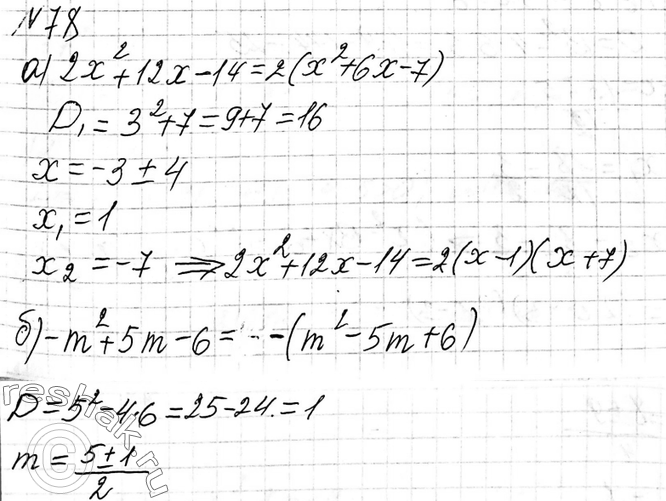 №78
а) 2x²+12x-14=2(x²+6x-7)
D₁=3²+7=9+7=16
x=-3±4
x₁=1
x₂=-7 ⇒ 2x²+12x-14=2(x-1)(x+7)
б) -m²+5m-6=-(m²-5m+6)
D=5²-4·6=25-24=1
m=(5±1)/2
reshak.ru